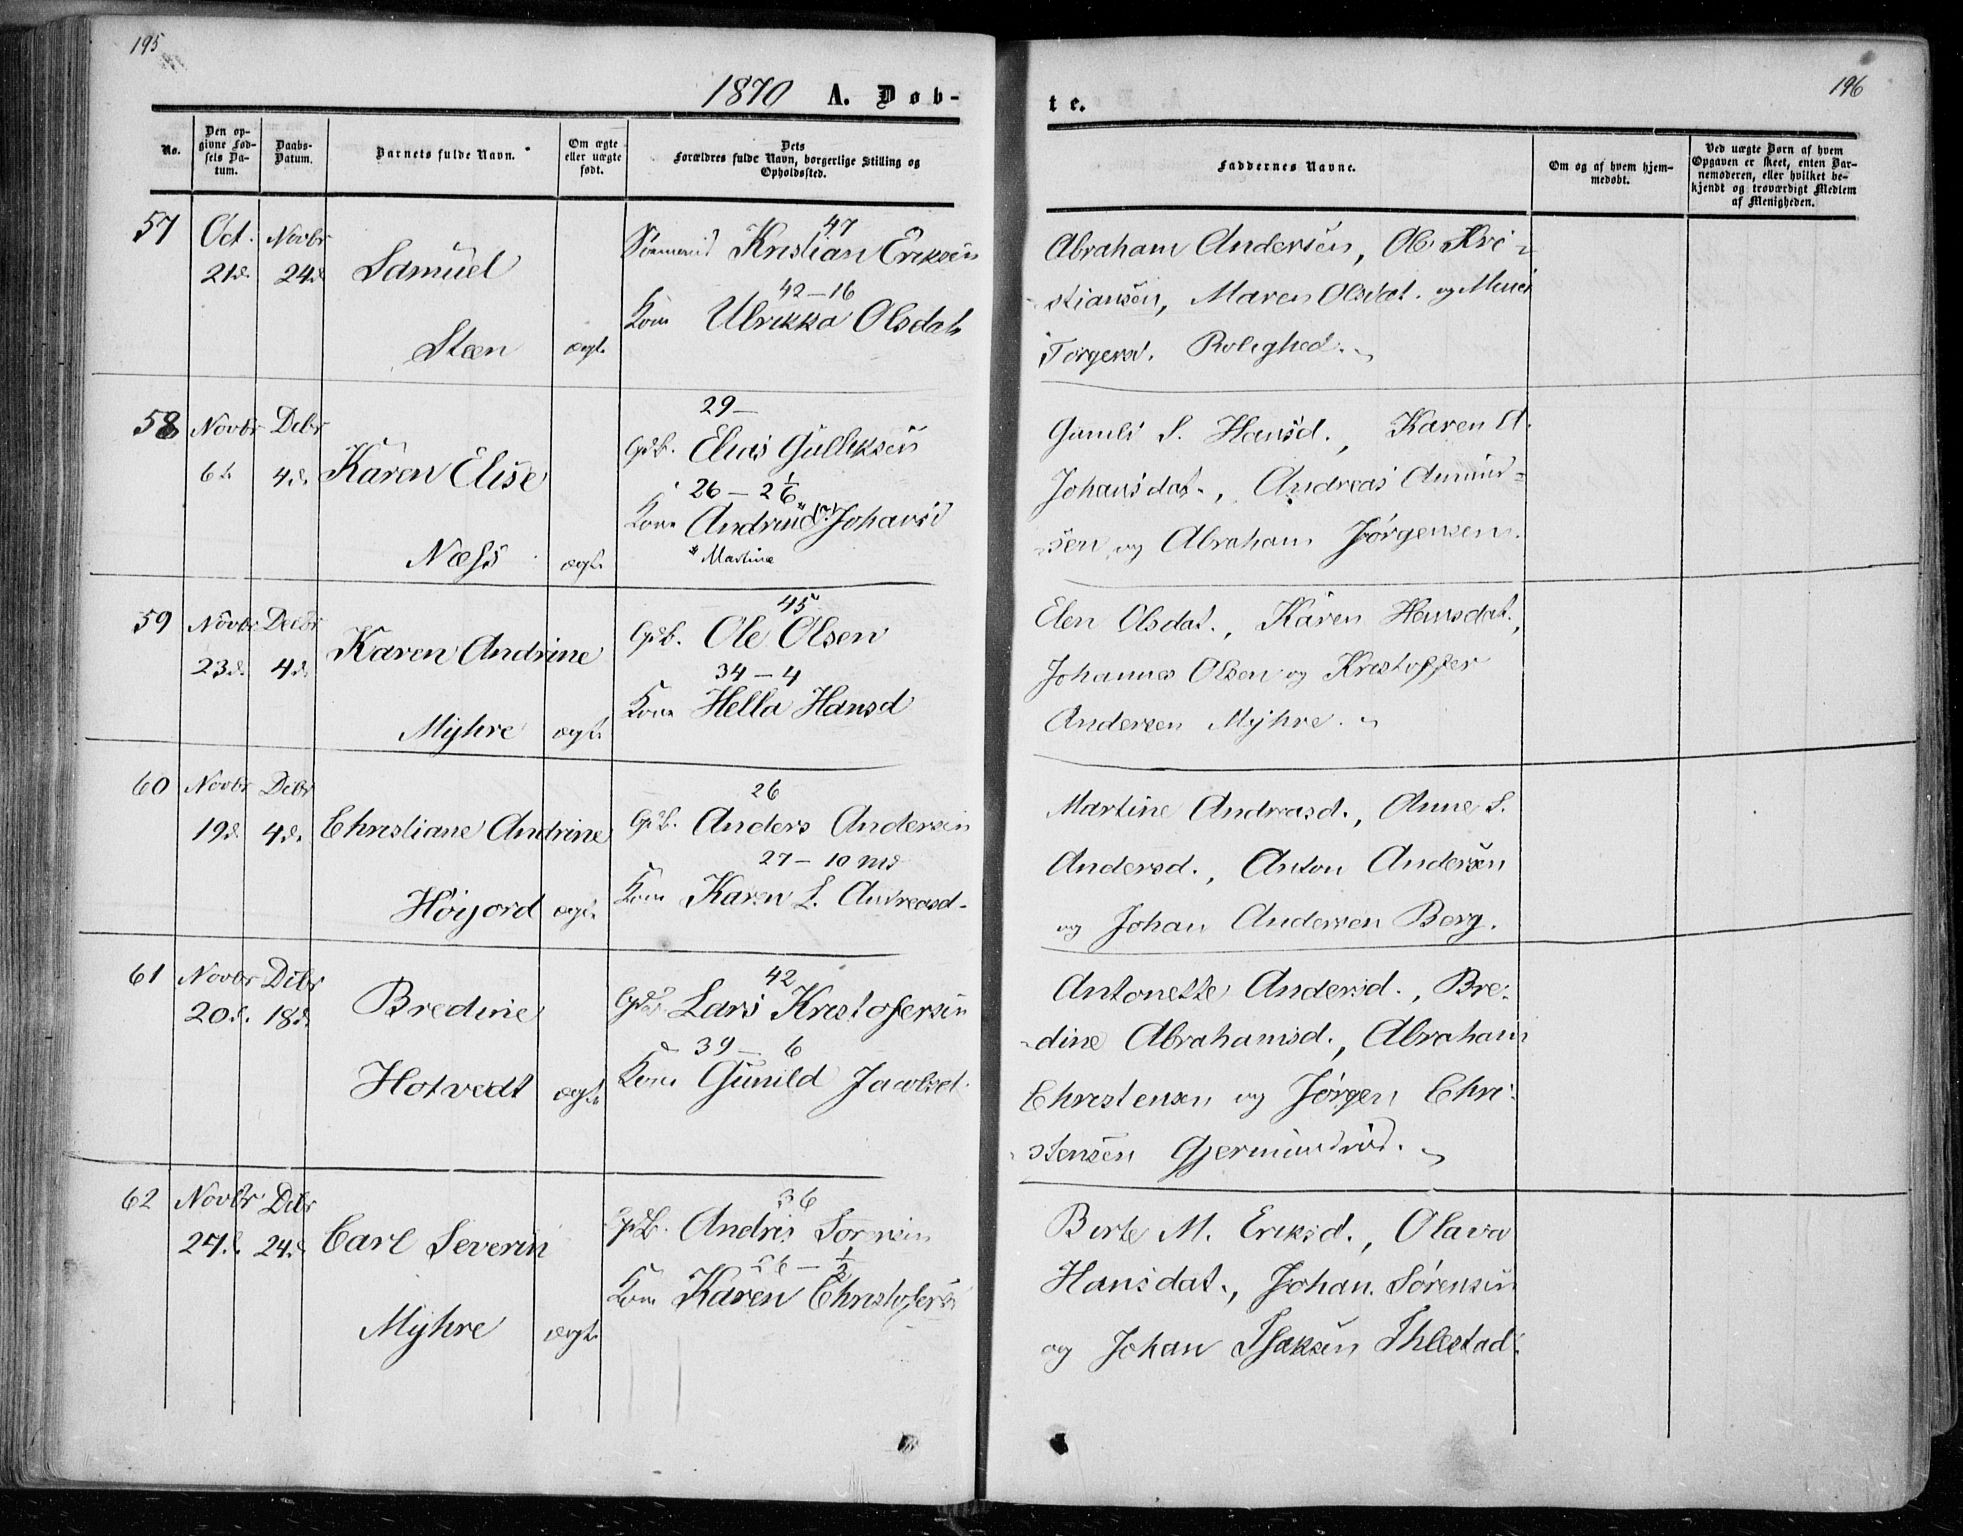 195
196
1870 A. Døb-
te.
No.
Den op-
givne Fød-
sels Da-
tum.
Daabs-
Datum.
Barnets fulde Navn.
Om ægte
eller uægte
født.
Dets
Forældres fulde Navn, borgerlige Stilling og
Opholdssted.
Faddernes Navne.
Om og af hvem hjem-
medøbt.
Ved uægte Børn af hvem
Opgaven er skeet, enten Bar-
nemoderen, eller hvilket be-
kjendt og troværdigt Medlem
af Menigheden.
57 Oct. Novbr
21d. 24d. Samuel
Steen ægt.
47
Sømand Kristian Eriksen
42-16
Kone Ulrikka Olsdat.
Abraham Andersen, Ole Kri-
stiansen, Maren Olsdat. og
Torgersd. Rolighed.
58 Novbr Debr
6t. 4d. Karen Elise
Næss ægt.
29-
Gdb. Elias Gulliksen
26-2 1/6
Kone Andrine* Johansd
* Martine
S. Hansd., Karen A.
Johansdat., Andreas Amund-
sen og Abraham Jørgensen.
59 Novbr Debr
23d. 4d. Karen Andrine
Myhre ægt.
45
Gdb. Ole Olsen
34-4
Kone Hella Hansd
Elen Olsdat., Karen Hansdat.,
Johannes Olsen og Kristoffer
Andersen Myhre.
60 Novbr Debr
19d. 4d. Christiane Andrine
Höijord ægt.
26
Gdb. Anders Andersen
27-10 md
Kone Karen L. Andreasd.
Martine Andreasd., Anne S.
Andersd., Anton Andersen
og Johan Andersen Berg.
61 Novbr Debr
20d. 18d. Bredine
Hotvedt ægt.
42
Lars Kristofersen
39-6
Kone Gunild Jacobsd.
Antonette Andersd., Bre-
dine Abrahamsd., Abraham
Christensen og Jørgen Chri-
stensen Gjermundrød.
62 Novbr Debr
27d. 24d. Carl Severin
Myhre ægt.
36
Gdb. Andris Sørensen
26-1/2
Kone Karen Christofersd
Berte M. Eriksd., Olava
Hansdat., Johan Sørensen
og Johan Isaksen Ihlestad.